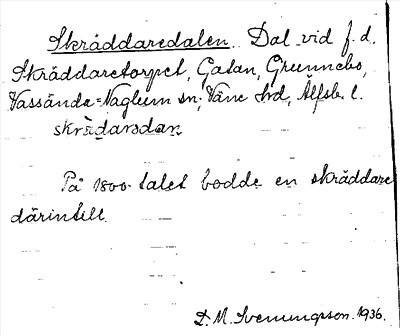 Skräddaredalen. Dal vid f. d.
Skräddaretorpet, Gatan, Grunnebo,
Vassända-Naglum sn; Väne hd, Älfsb. l.
skrädardan
På 1800-talet bodde en skräddare
därintill.
D. M. Svenungsson. 1936.